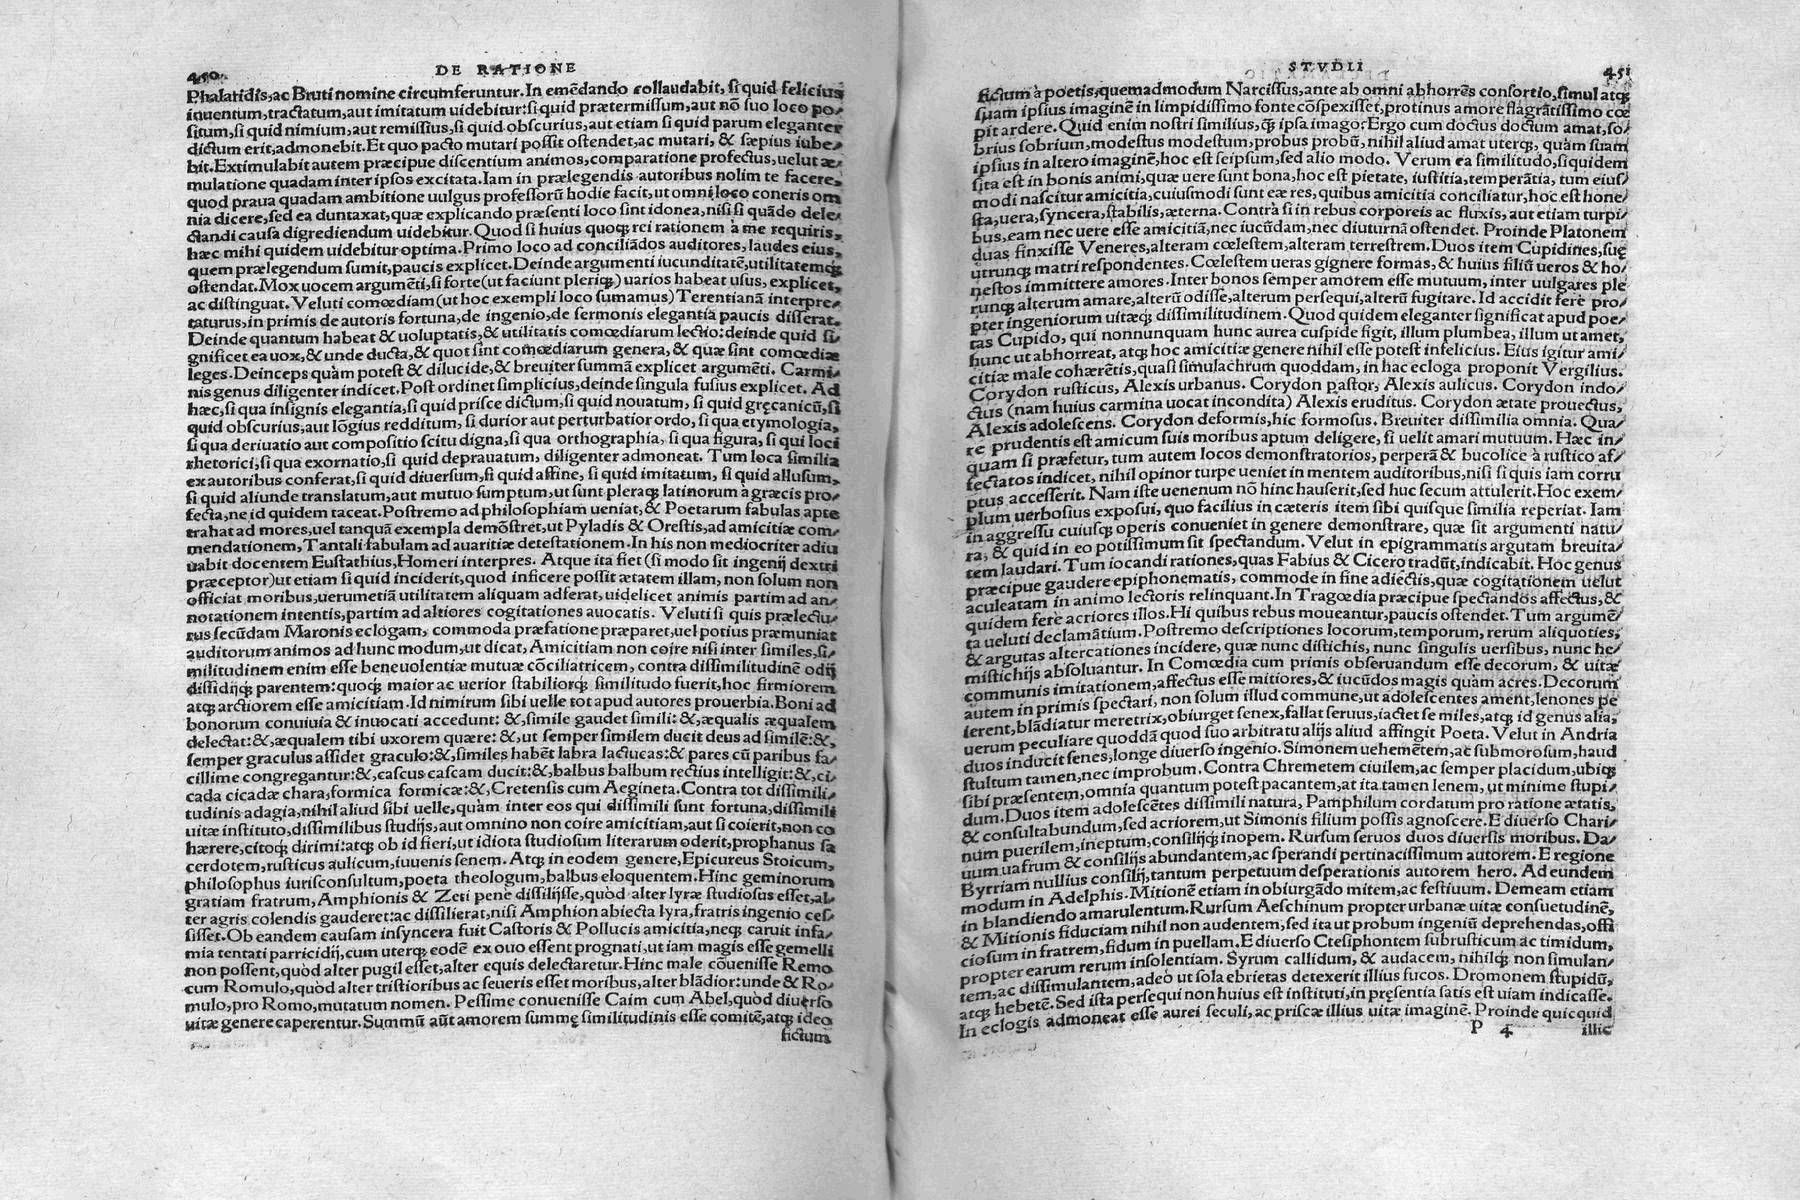 450 DE RATIONE
Phalaridis, ac Bruti nomine circumferuntur. In emẽdando collaudabit, si quid felicius
inuentum, tractatum, aut imitatum uidebitur: si quid prætermissum, aut nõ suo loco po/
situm, si quid nimium, aut remissius, si quid obscurius, aut etiam si quid parum eleganter
dictum erit, admonebit. Et quo pacto mutari possit ostendet, ac mutari, & sæpius iube/
bit. Extimulabit autem præcipue discentium animos, comparatione profectus, uelut æ/
mulatione quadam inter ipsos excitata. Iam in prælegendis autoribus nolim te facere,
quod praua quadam ambitione uulgus professorũ hodie facit, ut omni loco coneris om
nia dicere, sed ea duntaxat, quæ explicando præsenti loco sint idonea, nisi si quãdo dele/
ctandi causa digrediendum uidebitur. Quod si huius quoqꝫ rei rationem à me requiris,
hæc mihi quidem uidebitur optima. Primo loco ad conciliãdos auditores, laudes eius,
quem prælegendum sumit, paucis explicet. Deinde argumenti iucunditatẽ, utilitatemqꝫ
ostendat. Mox uocem argumẽti, si forte (ut faciunt pleriqꝫ) uarios habeat usus, explicet,
ac distinguat. Veluti comœdiam (ut hoc exempli loco sumamus) Terentianã interpre/
taturus, in primis de autoris fortuna, de ingenio, de sermonis elegantia paucis disserat.
Deinde quantum habeat & uoluptatis, & utilitatis comœdiarum lectio: deinde quid si/
gnificet ea uox, & unde ducta, & quot sint comœdiarum genera, & quæ sint comœdiæ
leges. Deinceps quàm potest & dilucide, & breuiter summã explicet argumẽti. Carmi/
nis genus diligenter indicet. Post ordinet simplicius, deinde singula fusius explicet. Ad
hæc, si qua insignis elegantia, si quid prisce dictum, si quid nouatum, si quid gręcanicũ, si
quid obscurius, aut lõgius redditum, si durior aut perturbatior ordo, si qua etymologia,
si qua deriuatio aut compositio scitu digna, si qua orthographia, si qua figura, si qui loci
rhetorici, si qua exornatio, si quid deprauatum, diligenter admoneat. Tum loca similia
ex autoribus conferat, si quid diuersum, si quid affine, si quid imitatum, si quid allusum,
si quid aliunde translatum, aut mutuo sumptum, ut sunt pleraqꝫ latinorum à græcis pro/
fecta, ne id quidem taceat. Postremo ad philosophiam ueniat, & Poetarum fabulas apte
trahat ad mores, uel tanquã exempla demõstret, ut Pyladis & Orestis, ad amicitiæ com/
mendationem, Tantali fabulam ad auaritiæ detestationem. In his non mediocriter adiu
uabit docentem Eustathius, Homeri interpres. Atque ita fiet (si modo sit ingenij dextri
præceptor) ut etiam si quid inciderit, quod inficere possit ætatem illam, non solum non
officiat moribus, uerumetiã utilitatem aliquam adferat, uidelicet animis partim ad an/
notationem intentis, partim ad altiores cogitationes auocatis. Veluti si quis prælectu/
rus secũdam Maronis eclogam, commoda præfatione præparet, uel potius præmuniat
auditorum animos ad hunc modum, ut dicat, Amicitiam non coire nisi inter similes, si/
militudinem enim esse beneuolentiæ mutuæ cõciliatricem, contra dissimilitudinẽ odij
dissidijqꝫ parentem: quoqꝫ maior ac uerior stabiliorqꝫ similitudo fuerit, hoc firmiorem
atqꝫ arctiorem esse amicitiam. Id nimirum sibi uelle tot apud autores prouerbia. Boni ad
bonorum conuiuia & inuocati accedunt: &, simile gaudet simili: &, æqualis æqualem
delectat: &, æqualem tibi uxorem quære: &, ut semper similem ducit deus ad similẽ: &,
semper graculus assidet graculo: &, similes habẽt labra lactucas: & pares cũ paribus fa/
cillime congregantur: &, cascus cascam ducit: &, balbus balbum rectius intelligit: &, ci/
cada cicadæ chara, formica formicæ: &, Cretensis cum Aegineta. Contra tot dissimili/
tudinis adagia, nihil aliud sibi uelle, quàm inter eos qui dissimili sunt fortuna, dissimili
uitæ instituto, dissimilibus studijs, aut omnino non coire amicitiam, aut si coierit, non co
hærere, citoqꝫ dirimi: atqꝫ ob id fieri, ut idiota studiosum literarum oderit, prophanus sa
cerdotem, rusticus aulicum, iuuenis senem. Atqꝫ in eodem genere, Epicureus Stoicum,
philosophus iurisconsultum, poeta theologum, balbus eloquentem. Hinc geminorum
gratiam fratrum, Amphionis & Zeti pene dissilijsse, quòd alter lyræ studiosus esset, al/
ter agris colendis gauderet: ac dissilierat, nisi Amphion abiecta lyra, fratris ingenio ces/
sisset. Ob eandem causam insyncera fuit Castoris & Pollucis amicitia, neqꝫ caruit infa/
mia tentati parricidij, cum uterqꝫ eodẽ ex ouo essent prognati, ut iam magis esse gemelli
non possent, quòd alter pugil esset, alter equis delectaretur. Hinc male cõuenisse Remo
cum Romulo, quòd alter tristioribus ac seueris esset moribus, alter blãdior: unde & Ro/
mulo, pro Romo, mutatum nomen. Pessime conuenisse Caim cum Abel, quòd diuerso
uitæ genere caperentur. Summũ aũt amorem summę similitudinis esse comitẽ, atqꝫ ideo
fictum
STVDII 451
fictum à poetis, quemadmodum Narcissus, ante ab omni abhorrẽs consortio, simul atqꝫ
suam ipsius imaginẽ in limpidissimo fonte cõspexisset, protinus amore flagrãtissimo cœ
pit ardere. Quid enim nostri similius, qꝫ̃ ipsa imago? Ergo cum doctus doctum amat, so/
brius sobrium, modestus modestum, probus probũ, nihil aliud amat uterqꝫ, quàm suam
ipsius in altero imaginẽ, hoc est seipsum, sed alio modo. Verum ea similitudo, si quidem
sita est in bonis animi, quæ uere sunt bona, hoc est pietate, iustitia, temperãtia, tum eius/
modi nascitur amicitia, cuiusmodi sunt eæ res, quibus amicitia conciliatur, hoc est hone/
sta, uera, syncera, stabilis, æterna. Contrà si in rebus corporeis ac fluxis, aut etiam turpi/
bus, eam nec uere esse amicitiã, nec iucũdam, nec diuturnã ostendet. Proinde Platonem
duas finxisse Veneres, alteram cœlestem, alteram terrestrem. Duos item Cupidines, suę
utrunqꝫ matri respondentes. Cœlestem ueras gignere formas, & huius filiũ ueros & ho/
nestos immittere amores. Inter bonos semper amorem esse mutuum, inter uulgares ple
runqꝫ alterum amare, alterũ odisse, alterum persequi, alterũ fugitare. Id accidit fere pro/
pter ingeniorum uitæqꝫ dissimilitudinem. Quod quidem eleganter significat apud poe/
tas Cupido, qui nonnunquam hunc aurea cuspide figit, illum plumbea, illum ut amet,
hunc ut abhorreat, atqꝫ hoc amicitiæ genere nihil esse potest infelicius. Eius igitur ami/
citiæ male cohærẽtis, quasi simulachrum quoddam, in hac ecloga proponit Vergilius.
Corydon rusticus, Alexis urbanus. Corydon pastor, Alexis aulicus. Corydon indo/
ctus (nam huius carmina uocat incondita) Alexis eruditus. Corydon ætate prouectus,
Alexis adolescens. Corydon deformis, hic formosus. Breuiter dissimilia omnia. Qua/
re prudentis est amicum suis moribus aptum deligere, si uelit amari mutuum. Hæc in/
quam si præfetur, tum autem locos demonstratorios, perperã & bucolice à rustico af/
fectatos indicet, nihil opinor turpe ueniet in mentem auditoribus, nisi si quis iam corru
ptus accesserit. Nam iste uenenum nõ hinc hauserit, sed huc secum attulerit. Hoc exem/
plum uerbosius exposui, quo facilius in cæteris item sibi quisque similia reperiat. Iam
in aggressu cuiusqꝫ operis conueniet in genere demonstrare, quæ sit argumenti natu/
ra, & quid in eo potissimum sit spectandum. Velut in epigrammatis argutam breuita/
tem laudari. Tum iocandi rationes, quas Fabius & Cicero tradũt, indicabit. Hoc genus
præcipue gaudere epiphonematis, commode in fine adiectis, quæ cogitationem uelut
aculeatam in animo lectoris relinquant. In Tragœdia præcipue spectandos affectus, &
quidem ferè acriores illos. Hi quibus rebus moueantur, paucis ostendet. Tum argumẽ/
ta ueluti declamãtium. Postremo descriptiones locorum, temporum, rerum aliquoties,
& argutas altercationes incidere, quæ nunc distichis, nunc singulis uersibus, nunc he/
mistichijs absoluantur. In Comœdia cum primis obseruandum esse decorum, & uitæ
communis imitationem, affectus esse mitiores, & iucũdos magis quàm acres. Decorum
autem in primis spectari, non solum illud commune, ut adolescentes ament, lenones pe
ierent, blãdiatur meretrix, obiurget senex, fallat seruus, iactet se miles, atqꝫ id genus alia,
uerum peculiare quoddã quod suo arbitratu alijs aliud affingit Poeta. Velut in Andria
duos inducit senes, longe diuerso ingenio. Simonem uehemẽtem, ac submorosum, haud
stultum tamen, nec improbum. Contra Chremetem ciuilem, ac semper placidum, ubiqꝫ
sibi præsentem, omnia quantum potest pacantem, at ita tamen lenem, ut minime stupi/
dum. Duos item adolescẽtes dissimili natura, Pamphilum cordatum pro ratione ætatis,
& consultabundum, sed acriorem, ut Simonis filium possis agnoscere. E diuerso Chari/
num puerilem, ineptum, consilijqꝫ inopem. Rursum seruos duos diuersis moribus. Da/
uum uafrum & consilijs abundantem, ac sperandi pertinacissimum autorem. E regione
Byrriam nullius consilij, tantum perpetuum desperationis autorem hero. Ad eundem
modum in Adelphis. Mitionẽ etiam in obiurgãdo mitem, ac festiuum. Demeam etiam
in blandiendo amarulentum. Rursum Aeschinum propter urbanæ uitæ consuetudinẽ,
& Mitionis fiduciam nihil non audentem, sed ita ut probum ingeniũ deprehendas, offi
ciosum in fratrem, fidum in puellam. E diuerso Ctesiphontem subrusticum ac timidum,
propter earum rerum insolentiam. Syrum callidum, & audacem, nihilqꝫ non simulan/
tem, ac dissimulantem, adeò ut sola ebrietas detexerit illius fucos. Dromonem stupidũ,
atqꝫ hebetẽ. Sed ista persequi non huius est instituti, in pręsentia satis est uiam indicasse.
In eclogis admoneat esse aurei seculi, ac priscæ illius uitæ imaginẽ. Proinde quicquid
P 4 illic